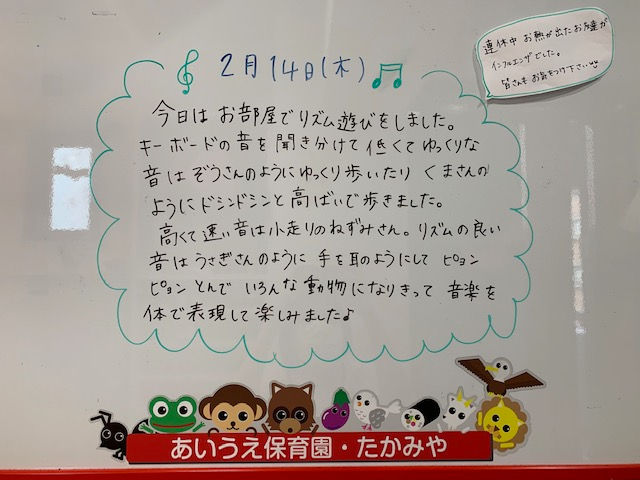 2月14日(木)
連休中 お熱が出たお友達が
インフルエンザでした。
皆さんも お気をつけ下さい
今日は お部屋でリズム遊びをしました。
キーボードの音を聞き分けて 低くてゆっくりな
音は ぞうさんのようにゆっくり歩いたり くまさんの
ようにドシンドシンと高ばいで歩きました。
高くて速い音は小走りのねずみさん。リズムの良い
音は うさぎさんのように 手を耳のようにして ピョン
ピョン とんで いろんな動物になりきって 音楽を
体で表現して楽しみました♪
あいうえ保育園・たかみや